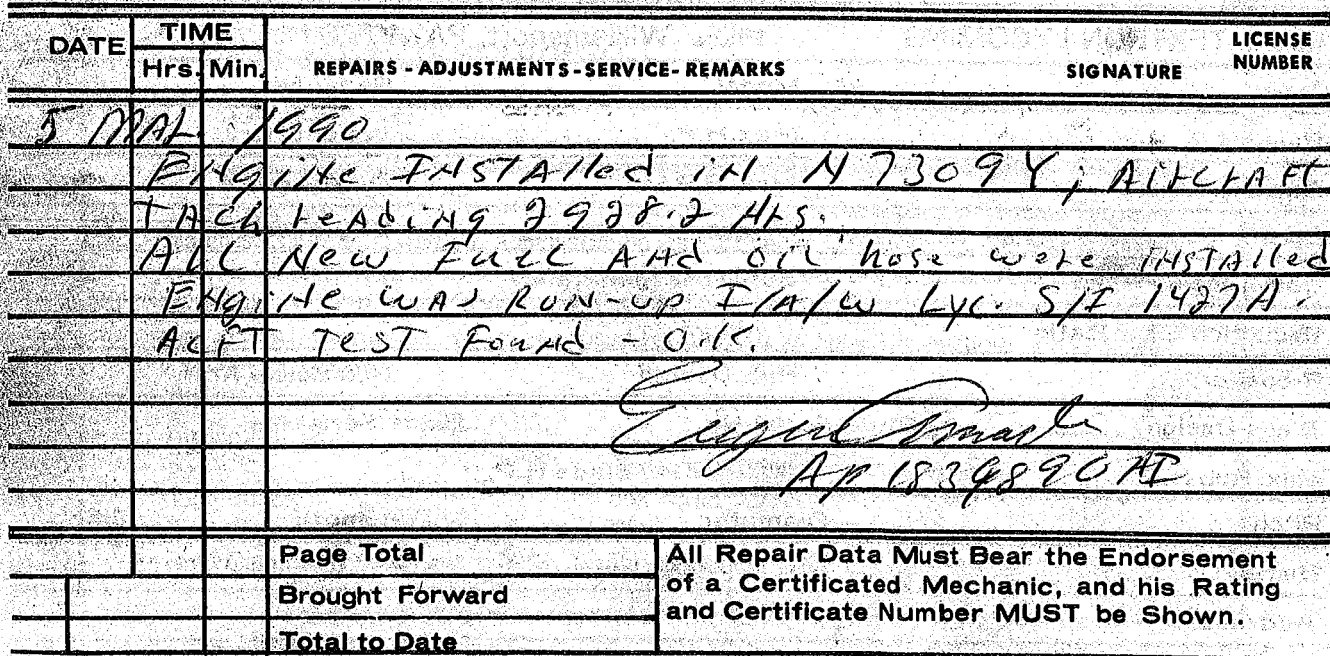 DATE TIME LICENSE
Hrs. Min. REPAIRS - ADJUSTMENTS - SERVICE - REMARKS SIGNATURE NUMBER
5 MAR. 1990
ENgiNe INSTAlled iN N7309Y; AIrcrAFT
TACH reAdiNg 2928.2 Hrs.
ALL New FueL ANd oiL hose were INSTAlled
ENgiNe WAS RUN-UP I/A/W Lyc. S/I 1427A.
ACFT TEST FouNd - O.K.
Eugene
AP 1839890 AI
Page Total
Brought Forward
Total to Date
All Repair Data Must Bear the Endorsement
of a Certificated Mechanic, and his Rating
and Certificate Number MUST be Shown.